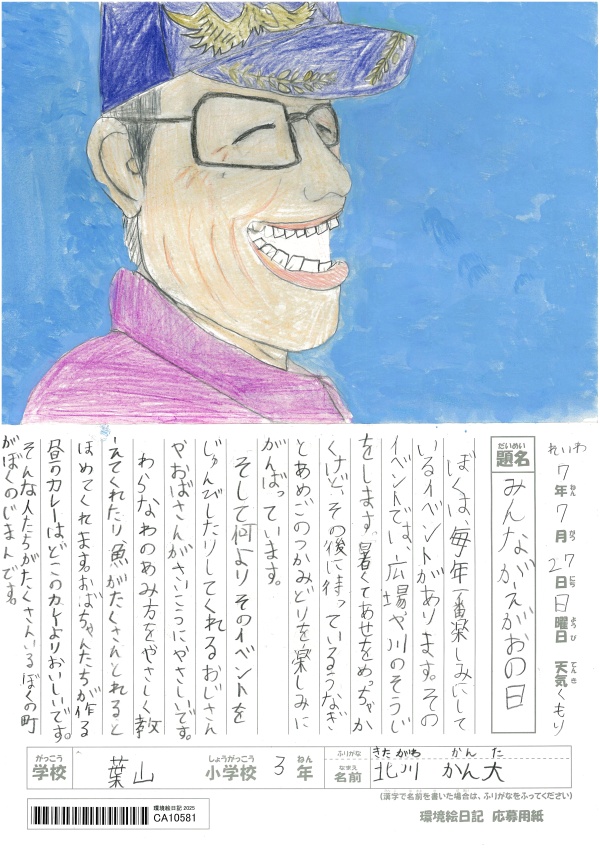 れいわ7年7月27日日曜日 天気くもり
ねん がつ にち よう び てんき
だいめい
題名 みんながえがおの日
ぼくは、毎年一番楽しみにして
いるイベントがあります。その
イベントでは、広場や川のそうじ
をします。暑くてあせをめっちゃか
くけど、その後に待っているうなぎ
とあめごのつかみどりを楽しみに
がんばっています。
そして何よりそのイベントを
じゅんびしたりしてくれるおじさん
やおばさんがさいこうにやさしいです。
わらなわのあみ方をやさしく教
えてくれたり魚がたくさんとれると
ほめてくれます。おばちゃんたちが作る
昼のカレーはどこのカレーよりおいしいです。
そんな人たちがたくさんいるぼくの町
がぼくのじまんです。
がっこう しょうがっこう ねん ふりがな きたがわ かんた
学校 葉山 小学校 3年 なまえ 名前 北川 かん大
(漢字で名前を書いた場合は、ふりがなをふってください)
環境絵日記 2025
CA10581
環境絵日記 応募用紙